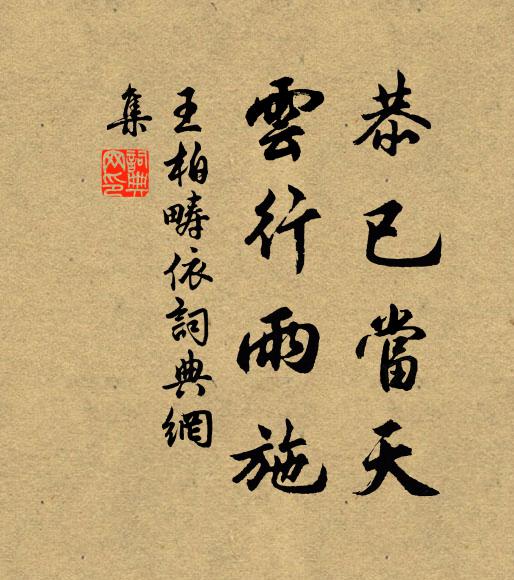 恭已當天
雲行雨施
王柏疇依詞典網
集
詞典
網印